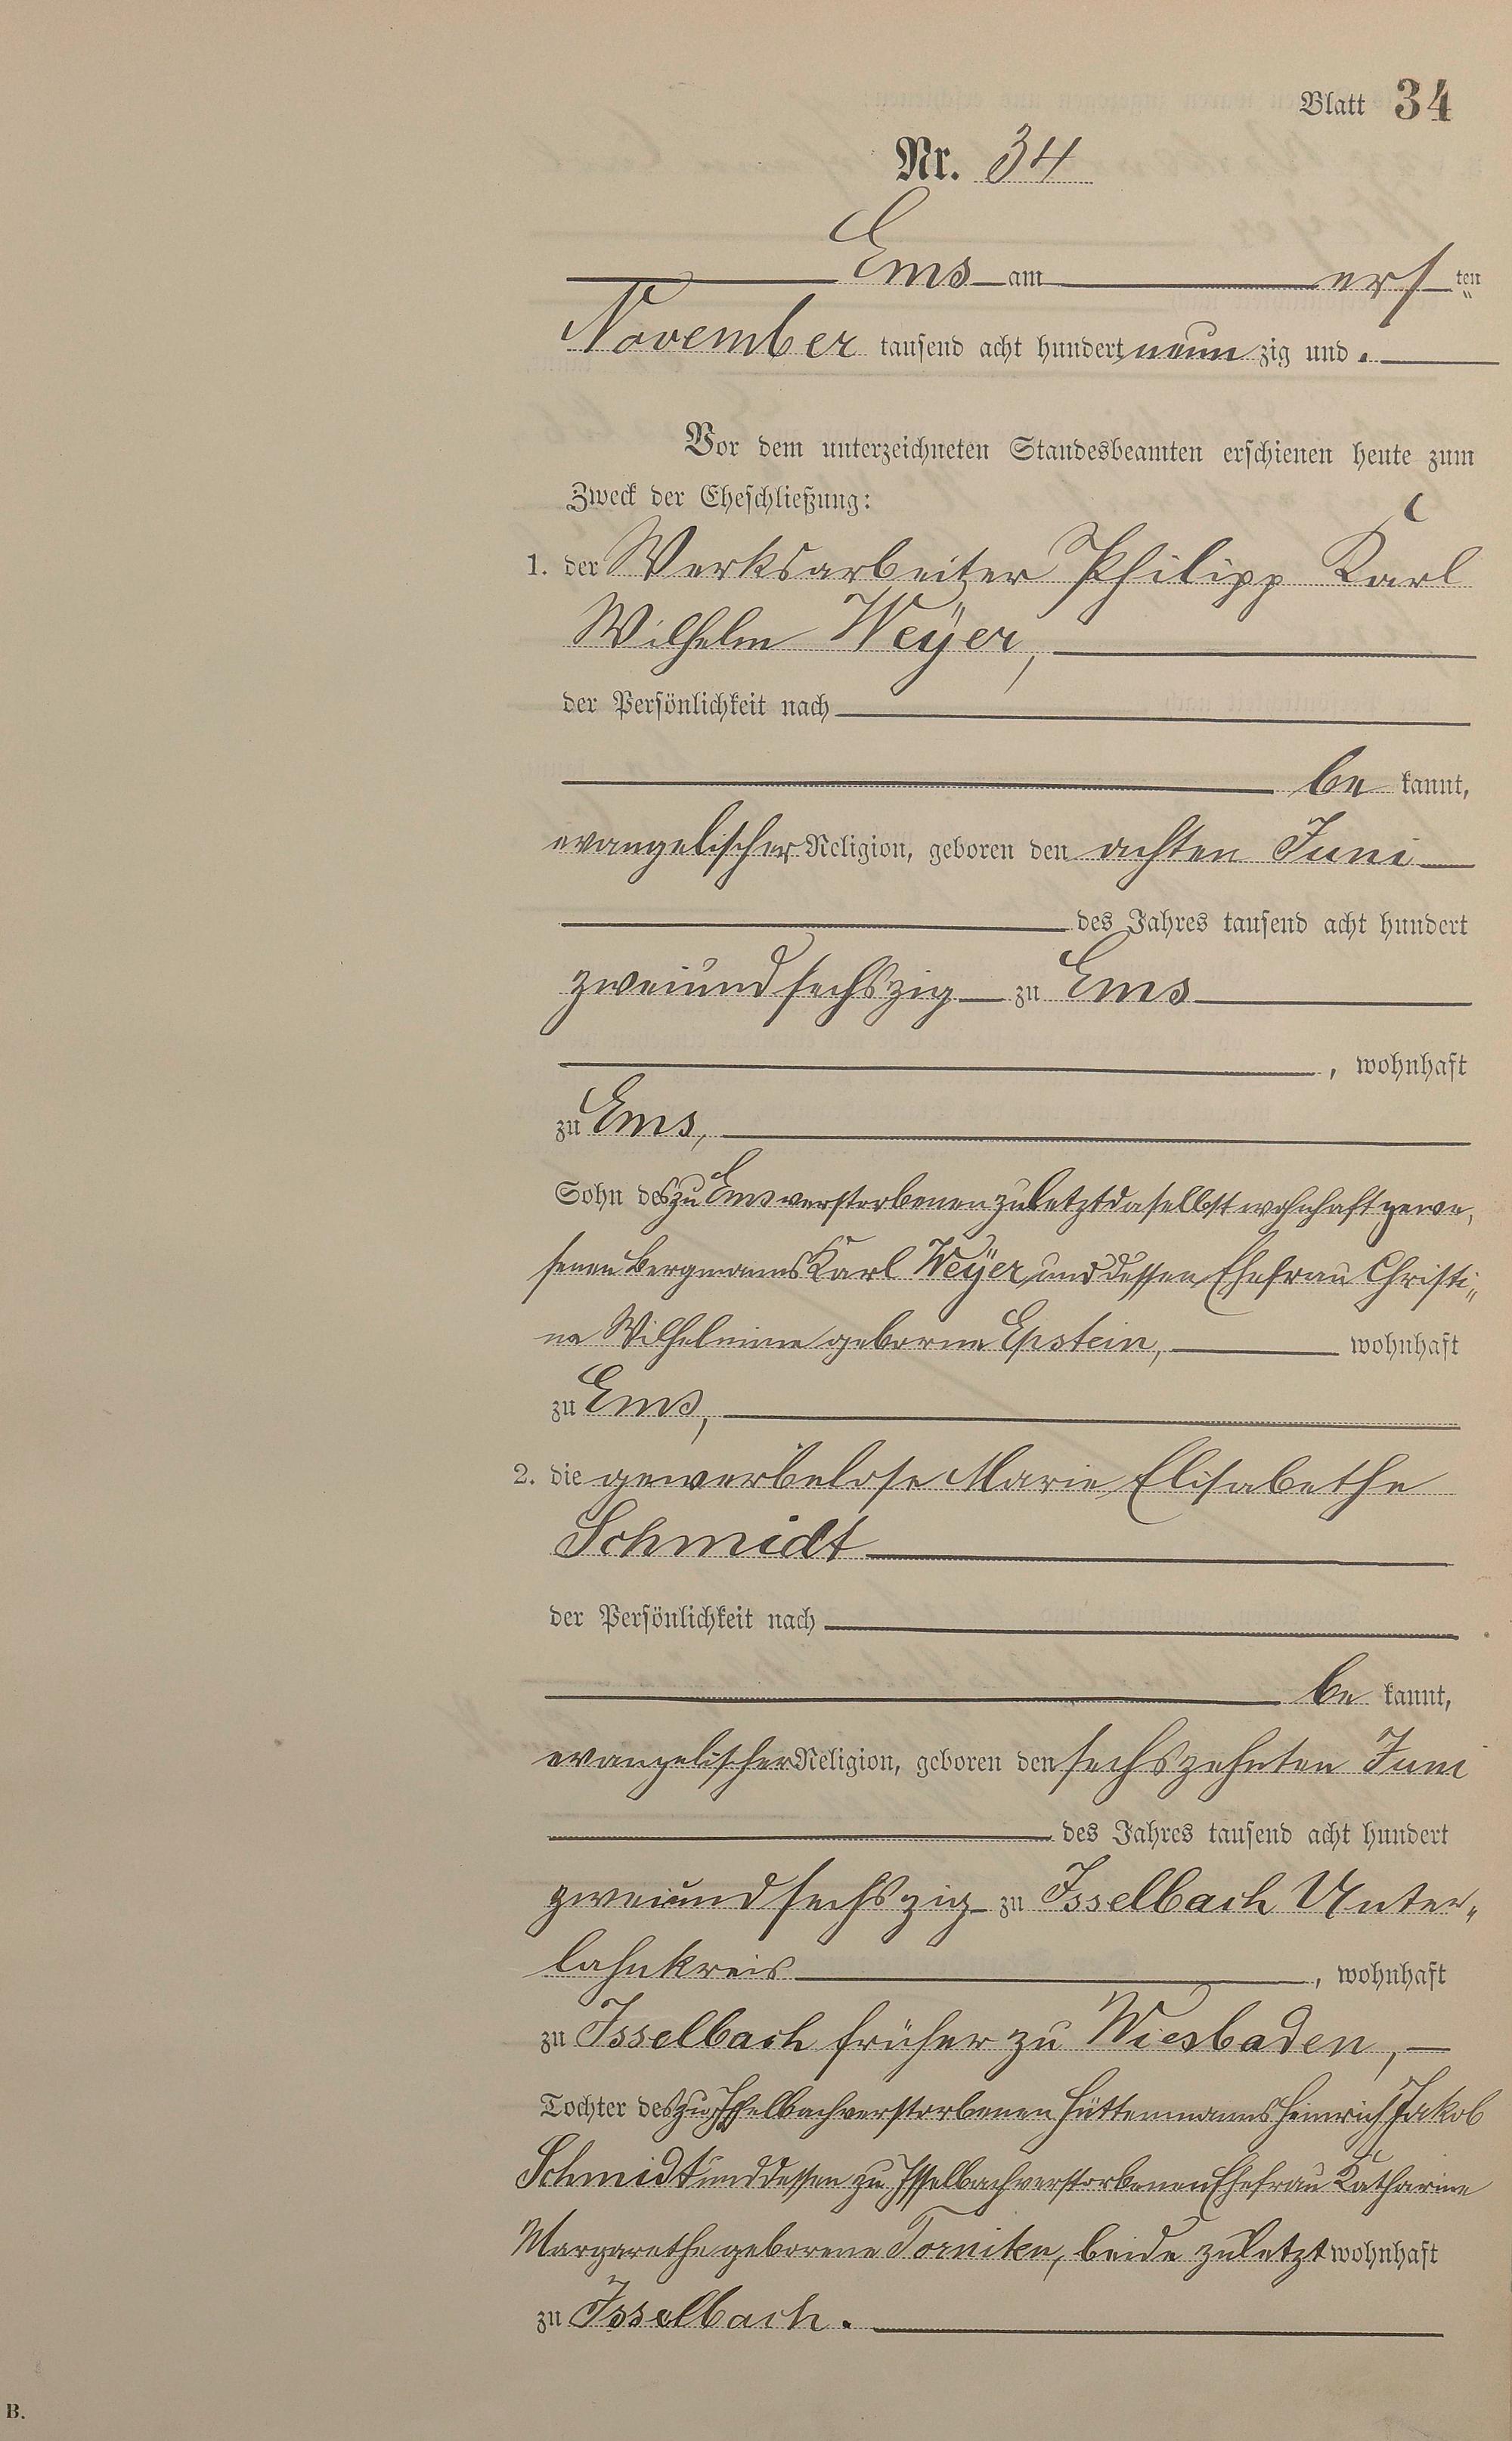 Blatt 34
Nr. 34
Ems am ersten
November tausend acht hundert neun zig und .
Vor dem unterzeichneten Standesbeamten erschienen heute zum
Zweck der Eheschließung:
1. der Werksarbeiter Philipp Karl
Wilhelm Weÿer,
der Persönlichkeit nach
be kannt,
evangelischer Religion, geboren den achten Juni
des Jahres tausend acht hundert
zweiundsechszig zu Ems
, wohnhaft
zu Ems,
Sohn des zu Ems verstorbenen zuletzt daselbst wohnhaft gewe„
senen Bergmanns Karl Weÿer und dessen Ehefrau Christi„
ne Wilhelmine geborne Epstein, wohnhaft
zu Ems,
2. die gewerbelose Marie Elisabethe
Schmidt
der Persönlichkeit nach
be kannt,
evangelischer Religion, geboren den sechszehnten Juni
des Jahres tausend acht hundert
zweiundsechszig zu Isselbach Unter„
lahnkreis , wohnhaft
zu Isselbach früher zu Wiesbaden,
Tochter des zu Isselbach verstorbenen Hüttenmanns Heinrich Jakob
Schmidt und dessen zu Isselbach verstorbenen Ehefrau Katharine
Margarethe geborene Torniten, beide zuletzt wohnhaft
zu Isselbach.
B.